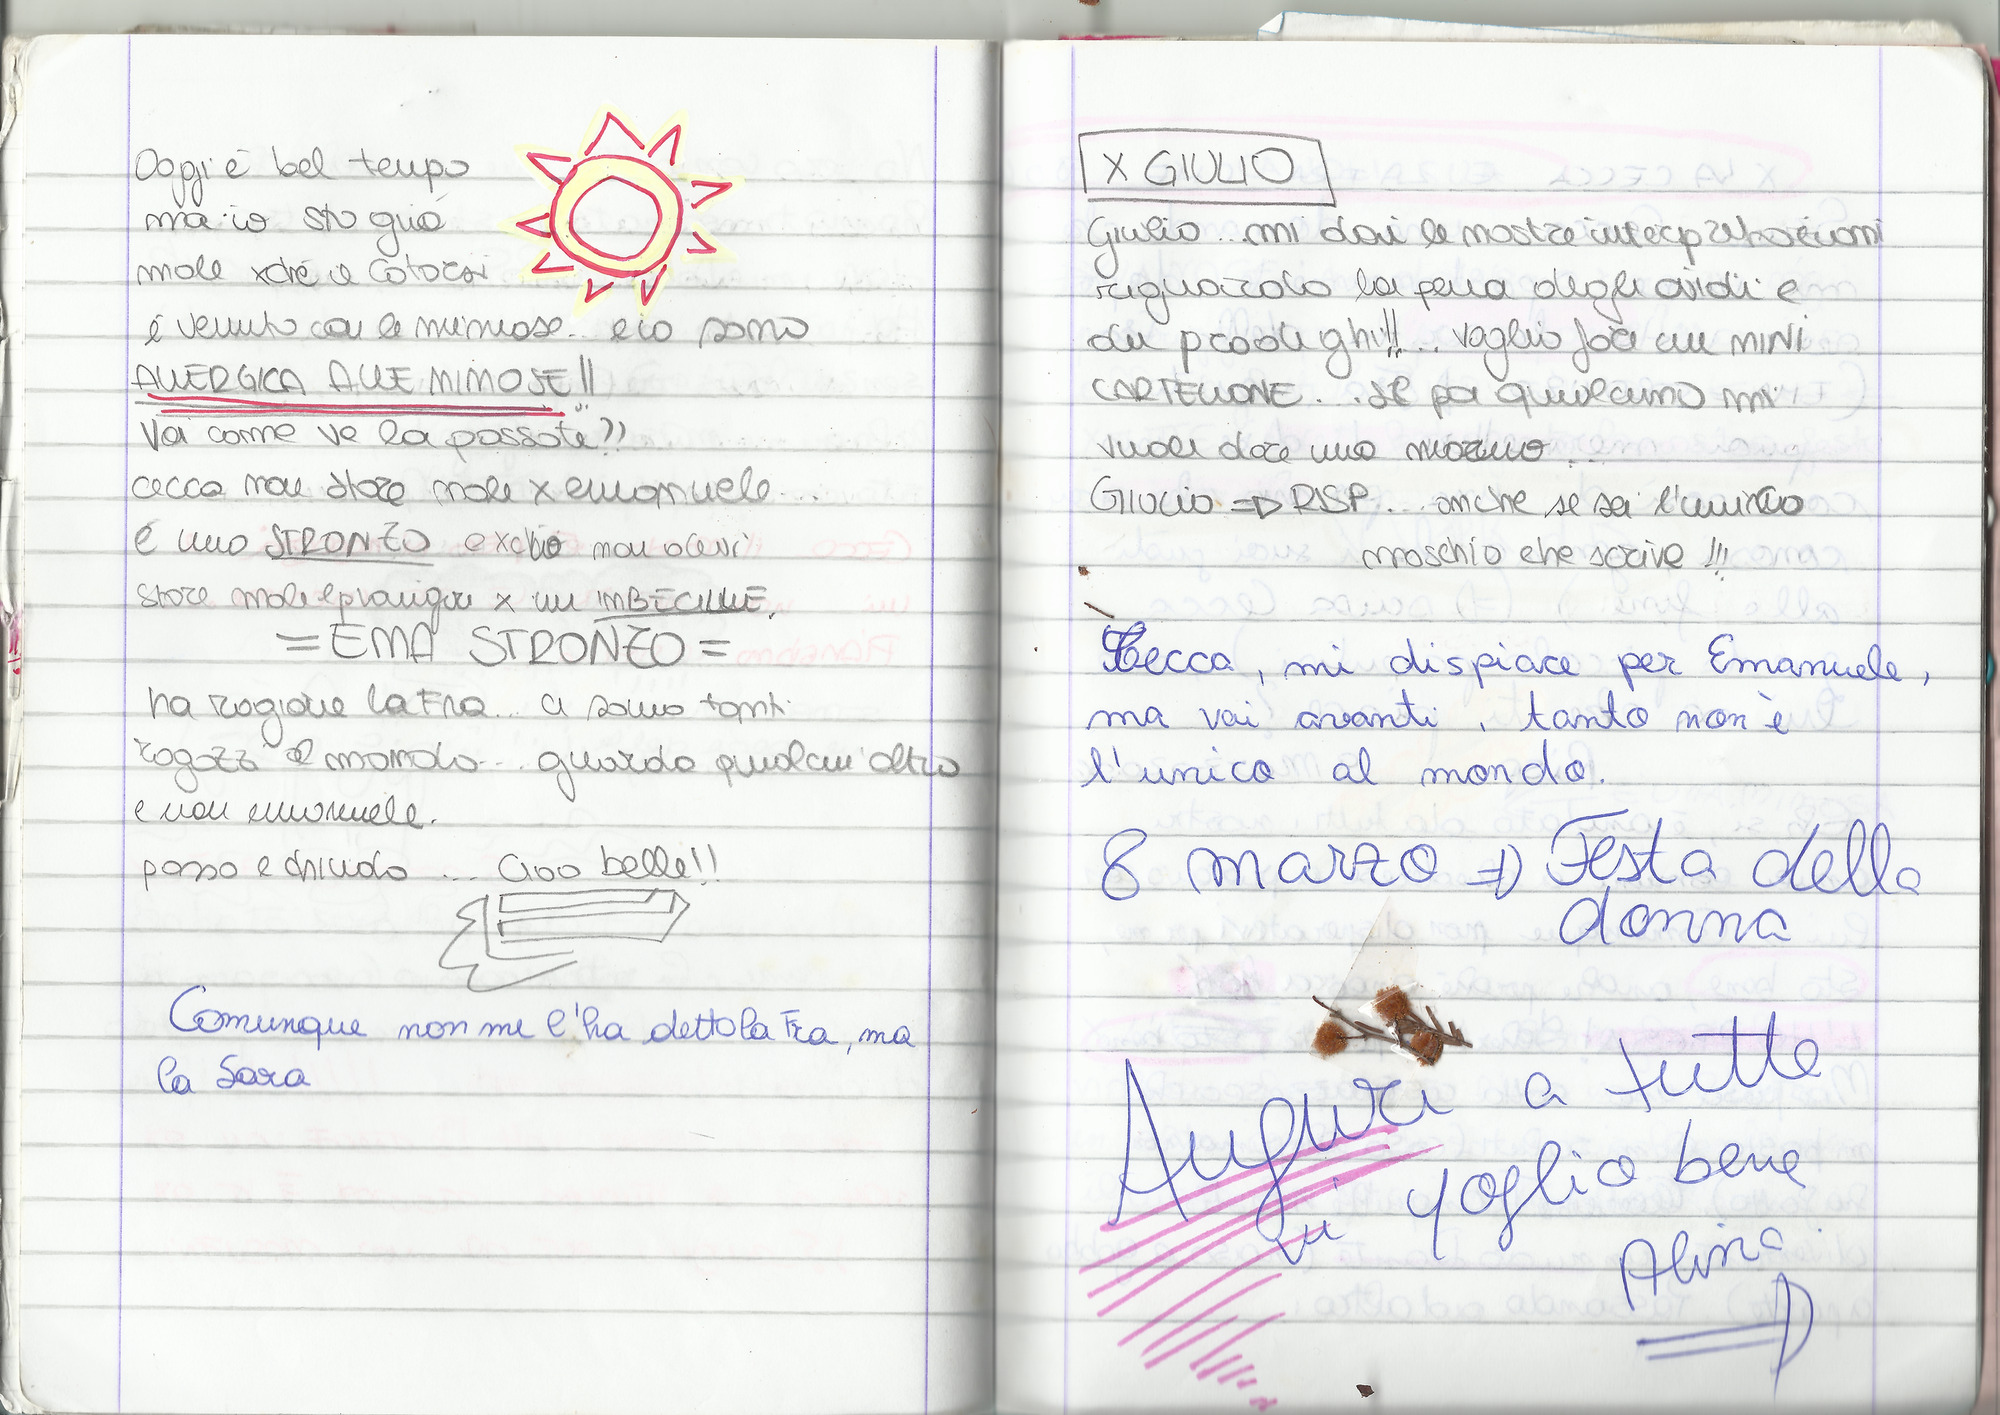 Oggi è bel tempo
ma io sto già
male xchè il Cotorsi
è venuto con le mimose... e io sono
ALLERGICA ALLE MIMOSE!!
Voi come ve la passate??
cecca non stare male x emanuele...
è uno STRONZO e xciò non devi
stare male e piangere x un IMBECILLE.
= EMA STRONZO =
ha ragione la Fra... ci sono tanti
ragazzi al mondo... guarda qualcun'altro
e non emanuele.
passo e chiudo ... ciao belle!!
Comunque non me l'ha detto la Fra, ma
la Sara
X GIULIO
Giulio... mi dai le nostre interpretazioni
riguardo la pena degli avidi e
dei prodighi!!... voglio fare un MINI
CARTELLONE... se poi qualcuno mi
vuole dare una mano...
Giulio => RISP... anche se sei l'unico
maschio che scrive !!!
Cecca, mi dispiace per Emanuele,
ma vai avanti, tanto non è
l'unico al mondo.
8 marzo => Festa della
donna
Auguri a tutte
vi voglio bene
Alina